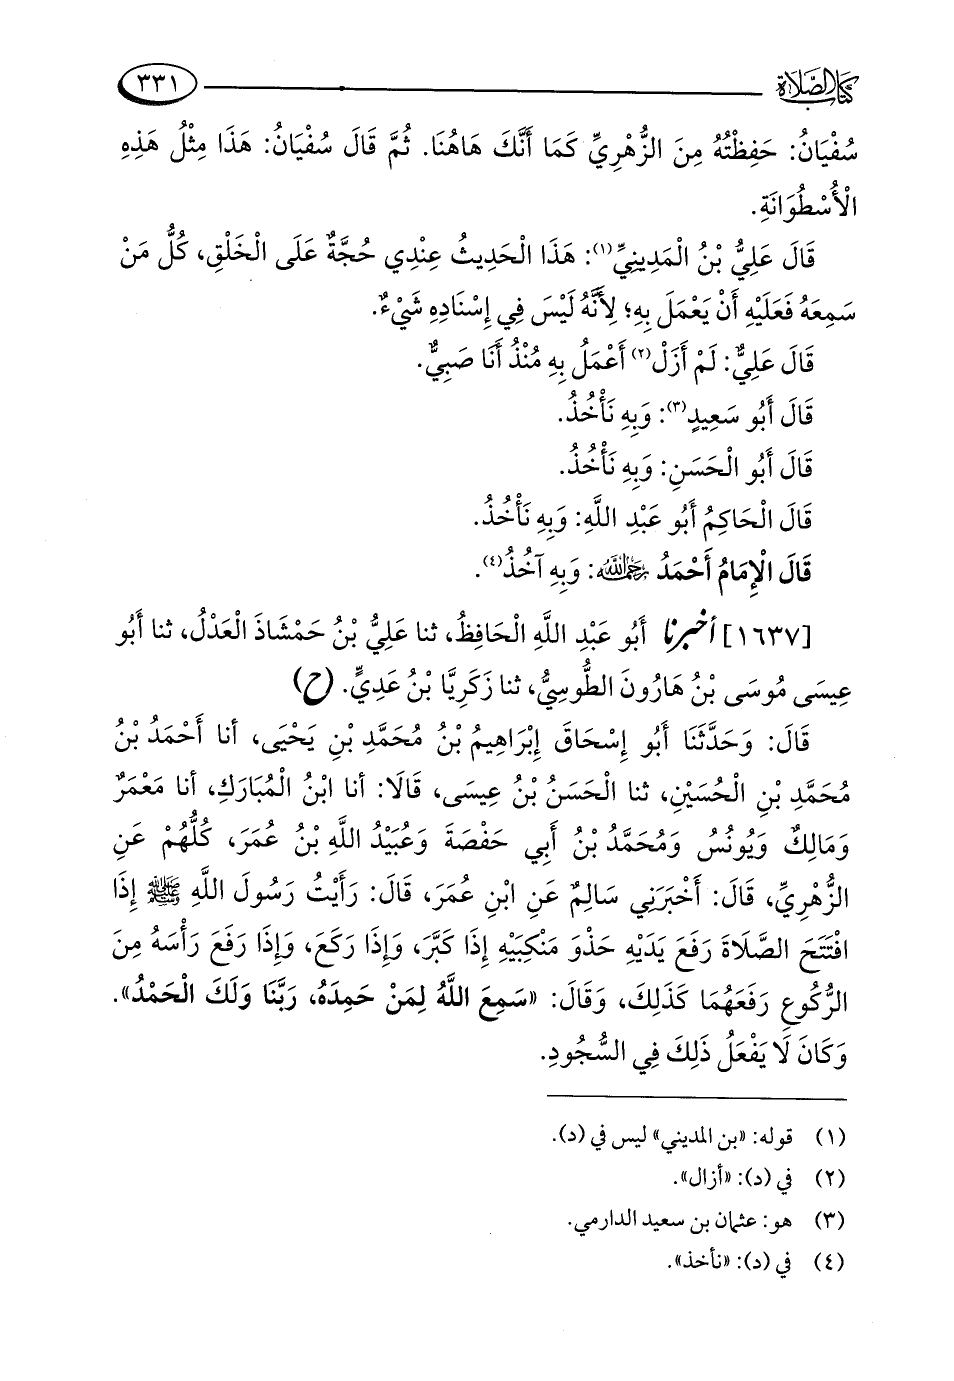 كتاب الصلاة
٣٣١
سُفْيَانُ: حَفِظْتُهُ مِنَ الزُّهْرِيِّ كَمَا أَنَّكَ هَاهُنَا. ثُمَّ قَالَ سُفْيَانُ: هَذَا مِثْلُ هَذِهِ
الْأُسْطُوَانَةِ.
قَالَ عَلِيُّ بْنُ الْمَدِينِيِّ(١): هَذَا الْحَدِيثُ عِنْدِي حُجَّةٌ عَلَى الْخَلْقِ، كُلُّ مَنْ
سَمِعَهُ فَعَلَيْهِ أَنْ يَعْمَلَ بِهِ؛ لِأَنَّهُ لَيْسَ فِي إِسْنَادِهِ شَيْءٌ.
قَالَ عَلِيٌّ: لَمْ أَزَلْ(٢) أَعْمَلُ بِهِ مُنْذُ أَنَا صَبِيٌّ.
قَالَ أَبُو سَعِيدٍ(٣): وَبِهِ نَأْخُذُ.
قَالَ أَبُو الْحَسَنِ: وَبِهِ نَأْخُذُ.
قَالَ الْحَاكِمُ أَبُو عَبْدِ اللَّهِ: وَبِهِ نَأْخُذُ.
قَالَ الْإِمَامُ أَحْمَدُ رحمه الله: وَبِهِ آخُذُ(٤).
[١٦٣٧] أخبرنا أَبُو عَبْدِ اللَّهِ الْحَافِظُ، ثنا عَلِيُّ بْنُ حَمْشَاذَ الْعَدْلُ، ثنا أَبُو
عِيسَى مُوسَى بْنُ هَارُونَ الطُّوسِيُّ، ثنا زَكَرِيَّا بْنُ عَدِيٍّ. (ح)
قَالَ: وَحَدَّثَنَا أَبُو إِسْحَاقَ إِبْرَاهِيمُ بْنُ مُحَمَّدِ بْنِ يَحْيَى، أنا أَحْمَدُ بْنُ
مُحَمَّدِ بْنِ الْحُسَيْنِ، ثنا الْحَسَنُ بْنُ عِيسَى، قَالَا: أنا ابْنُ الْمُبَارَكِ، أنا مَعْمَرٌ
وَمَالِكٌ وَيُونُسُ وَمُحَمَّدُ بْنُ أَبِي حَفْصَةَ وَعُبَيْدُ اللَّهِ بْنُ عُمَرَ، كُلُّهُمْ عَنِ
الزُّهْرِيِّ، قَالَ: أَخْبَرَنِي سَالِمٌ عَنِ ابْنِ عُمَرَ، قَالَ: رَأَيْتُ رَسُولَ اللَّهِ ﷺ إِذَا
افْتَتَحَ الصَّلَاةَ رَفَعَ يَدَيْهِ حَذْوَ مَنْكِبَيْهِ إِذَا كَبَّرَ، وَإِذَا رَكَعَ، وَإِذَا رَفَعَ رَأْسَهُ مِنَ
الرُّكُوعِ رَفَعَهُمَا كَذَلِكَ، وَقَالَ: «سَمِعَ اللَّهُ لِمَنْ حَمِدَهُ، رَبَّنَا وَلَكَ الْحَمْدُ».
وَكَانَ لَا يَفْعَلُ ذَلِكَ فِي السُّجُودِ.
(١) قوله: «بن المديني» ليس في (د).
(٢) في (د): «أزال».
(٣) هو: عثمان بن سعيد الدارمي.
(٤) في (د): «نأخذ».